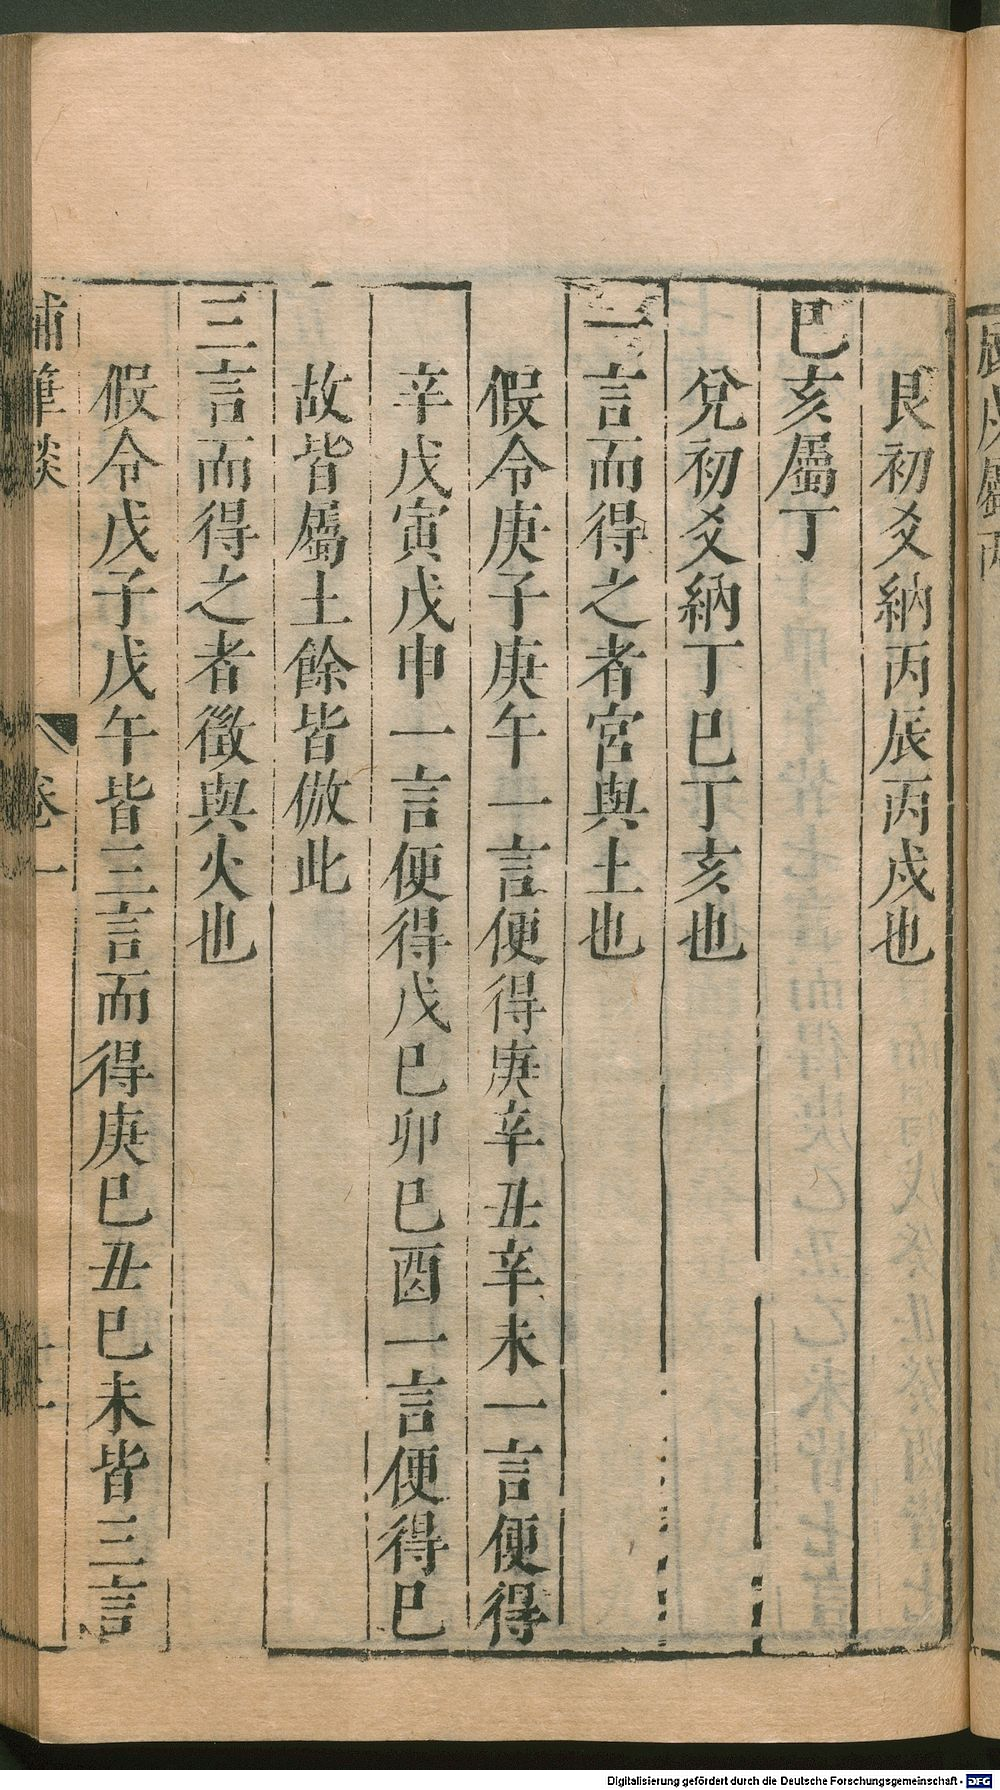 艮初爻納丙辰丙戍也
巳亥屬丁
兌初爻納丁巳丁亥也
一言而得之者宮與土也
假令庚子庚午一言便得庚辛丑辛未一言便得
辛戊寅戊申一言便得戊巳卯巳酉一言便得巳
故皆屬土餘皆倣此
三言而得之者徵與火也
假令戊子戊午皆三言而得庚巳丑巳未皆三言
補筆談
卷一
Digitalisierung gefördert durch die Deutsche Forschungsgemeinschaft - DFG